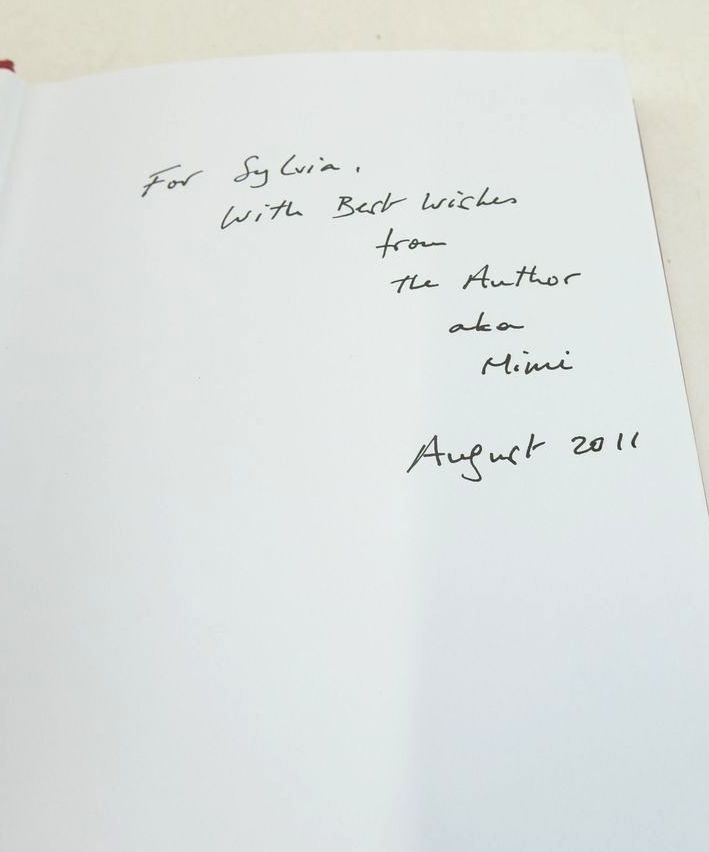 For Sylvia.
With Best Wishes
from
the Author
aka
Mimi
August 2011